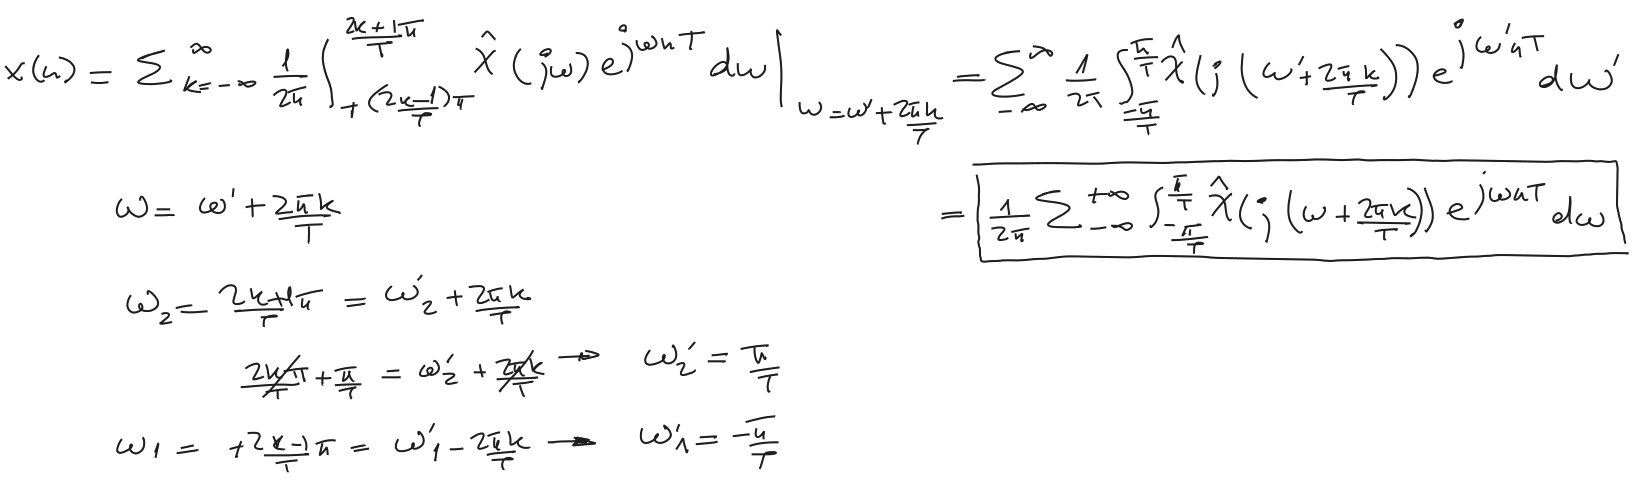 x(n) = Σ_{k=-∞}^{∞} 1/2π ∫_{+(2k-1)π/T}^{2k+1π/T} X̂(jω) e^{jωnT} dω |_{ω=ω'+2πk/T} = Σ_{-∞}^{∞} 1/2π ∫_{-π/T}^{π/T} X̂(j(ω'+2πk/T)) e^{jω'nT} dω'
ω = ω' + 2πk/T
= 1/2π Σ_{-∞}^{+∞} ∫_{-π/T}^{π/T} X̂(j(ω+2πk/T)) e^{jωnT} dω
ω₂ = 2k+1π/T = ω'₂ + 2πk/T
2kπ/T + π/T = ω'₂ + 2πk/T → ω₂' = π/T
ω₁ = +2k-1/T π = ω'₁ - 2πk/T → ω'₁ = -π/T